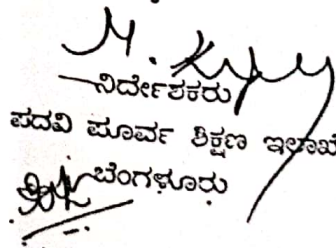 ನಿರ್ದೇಶಕರು
ಪದವಿ ಪೂರ್ವ ಶಿಕ್ಷಣ ಇಲಾಖೆ
ಬೆಂಗಳೂರು